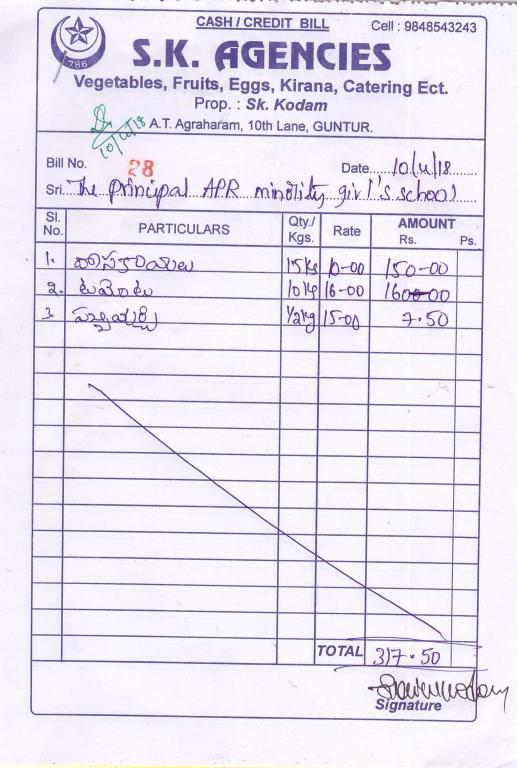 CASH / CREDIT BILL Cell : 9848543243
786
S.K. AGENCIES
Vegetables, Fruits, Eggs, Kirana, Catering Ect.
Prop. : Sk. Kodam
A.T. Agraharam, 10th Lane, GUNTUR.
Bill No. 28 Date 10/4/18
Sri. The principal APR minolity girl's school
Sl. No. PARTICULARS Qty./ Kgs. Rate AMOUNT Rs. Ps.
1. దోసకాయలు 15 kg 10-00 150-00
2. టమోటో 10 kg 16-00 160-00
3. పచ్చిమిర్చి 1/2 kg 15-00 7.50
TOTAL 317.50
Signature